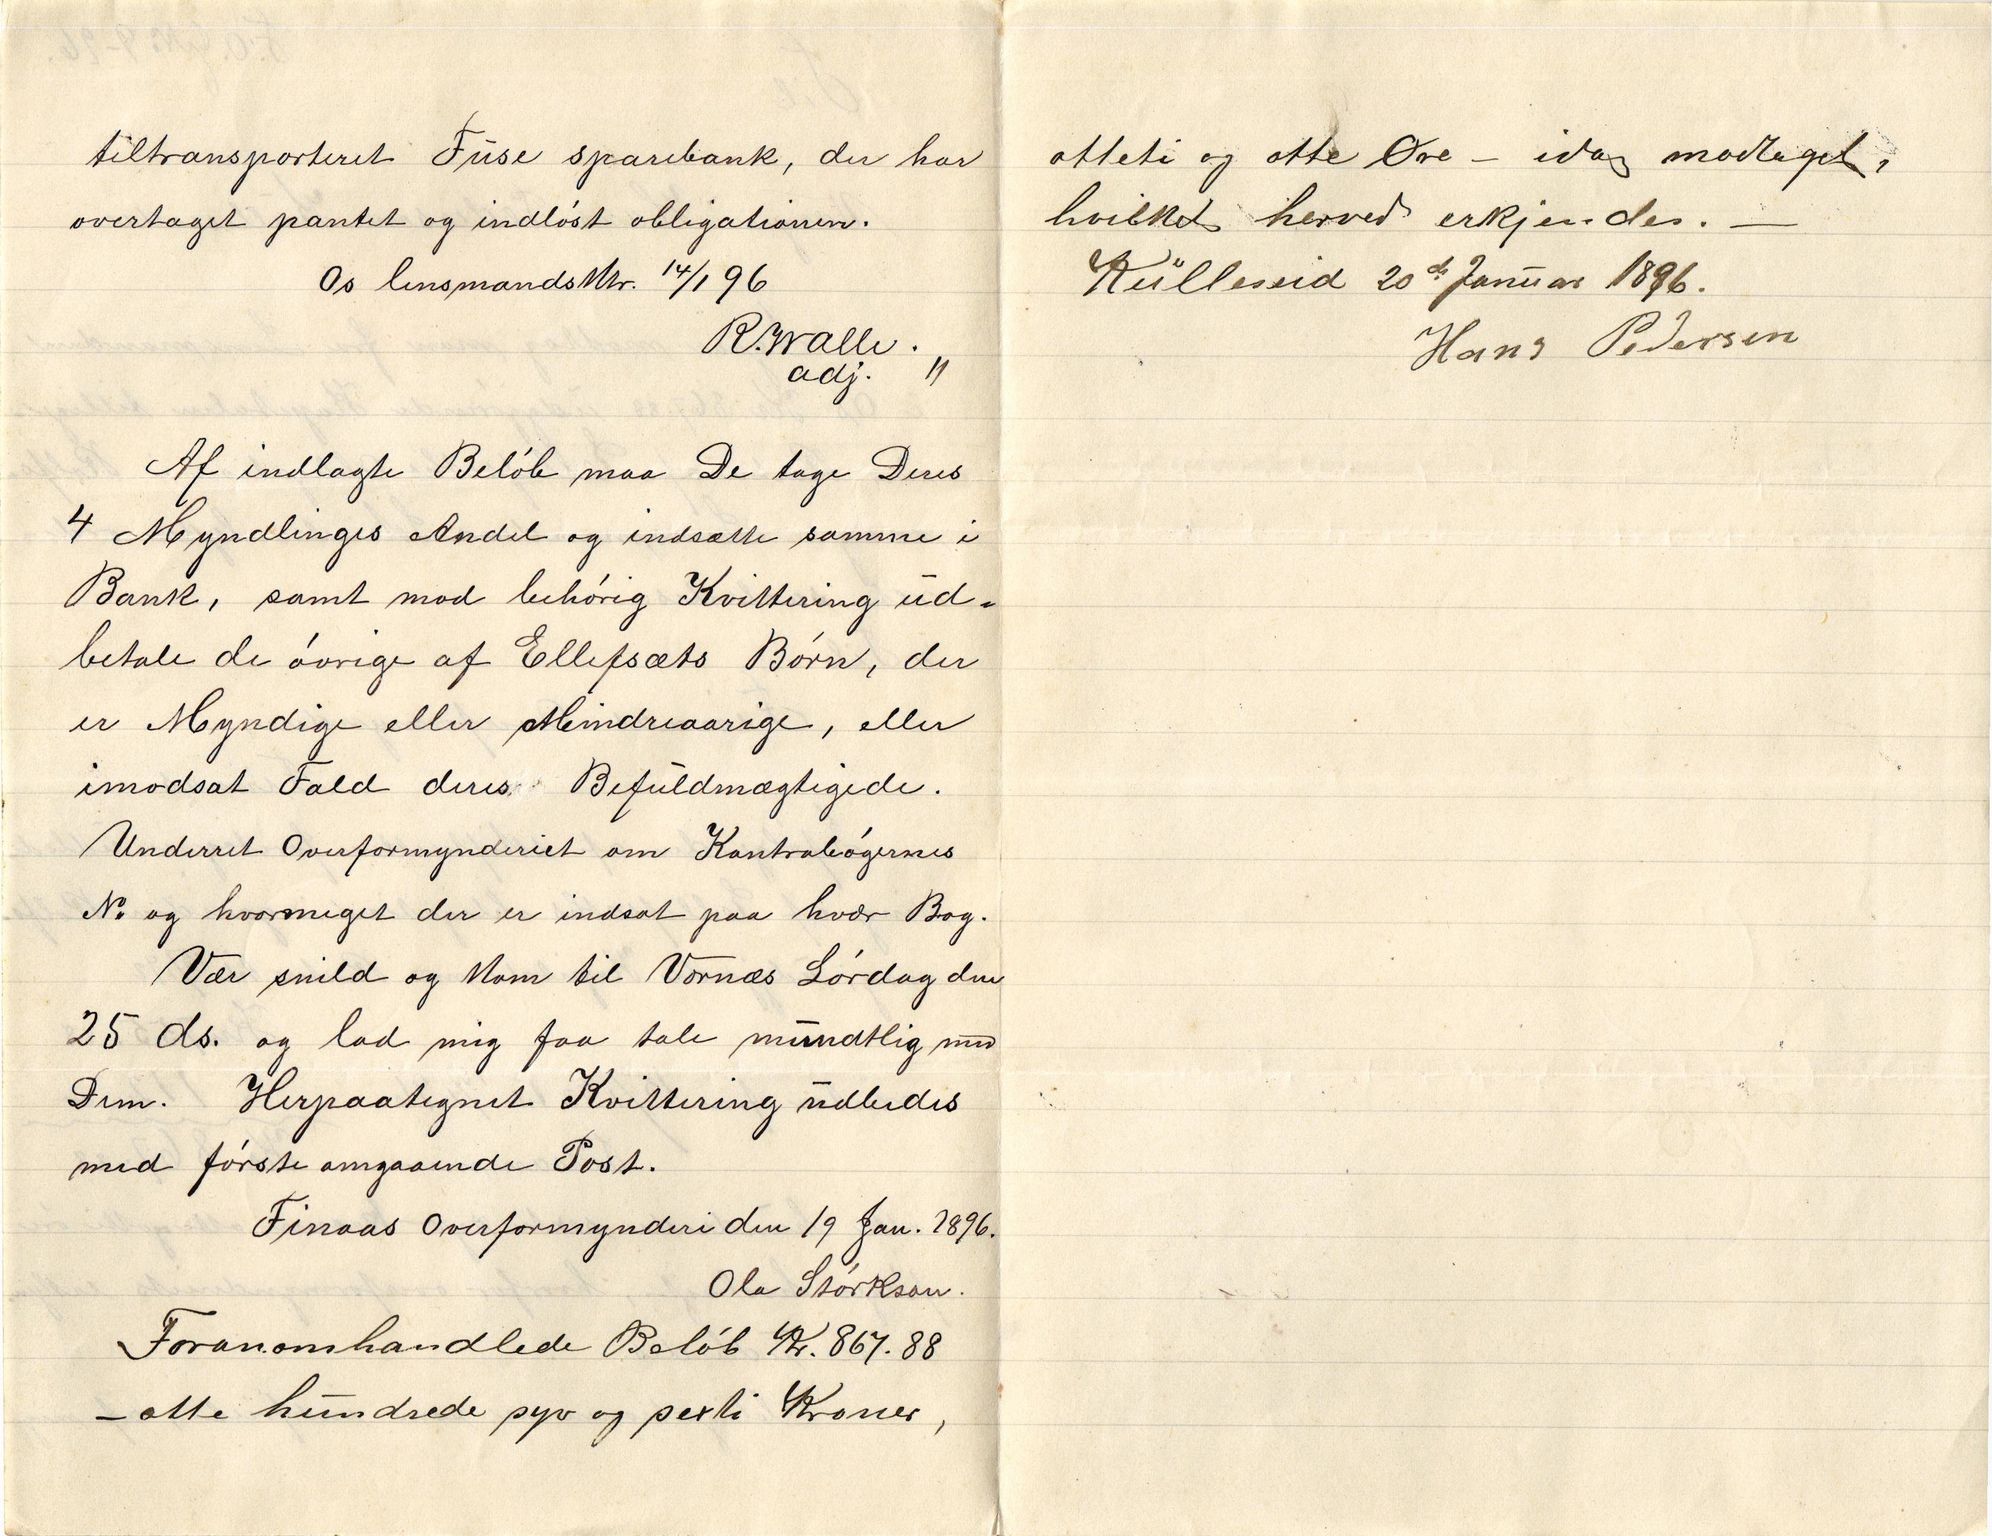 tiltransporteret Fuse sparebank, der har
overtaget pantet og indløst obligationen.
Os lensmandsktr. 14/1 96
R. Walle.
adj. "
Af indlagte Beløb maa De tage Deres
4 Myndlinges Andel og indsætte samme i
Bank, samt mod behørig Kvittering ud-
betale de øvrige af Ellefsæts Børn, der
er Myndige eller Mindreaarige, eller
imodsat Fald deres Befuldmægtigede.
Underret Overformynderiet om Kontrabøgernes
No og hvormeget der er indsat paa hvær Bog.
Vær snild og kom til Vornæs Lørdag den
25 ds. og lad mig faa tale mundtlig med
Dem. Herpaategnet Kvittering udbedes
med første omgaaende Post.
Finaas Overformynderi den 19 Jan. 1896.
Ola Størkson.
Foranomhandlede Beløb Kr. 867.88
– otte hundrede syv og sexti Kroner,
otteti og otte Øre – idag modtaget,
hvilket herved erkjendes. —
Kulleseid 20de Januar 1896.
Hans Pedersen